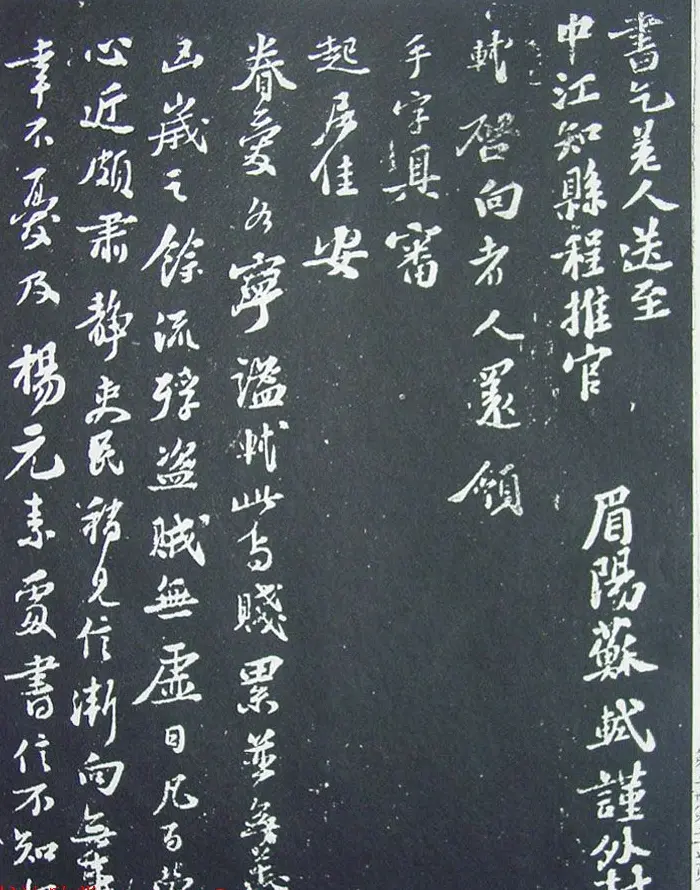 書乞差人送至
中江知縣程推官
眉陽蘇軾謹外封
軾啓向者人還領
手字具審
起居佳安
眷愛各寧謐軾此与賤累並無恙
凶歲之餘流殍盜賊無虛日凡百勞
心近頗肅靜吏民稍見信漸向無事
幸不憂及楊元素處書信不知